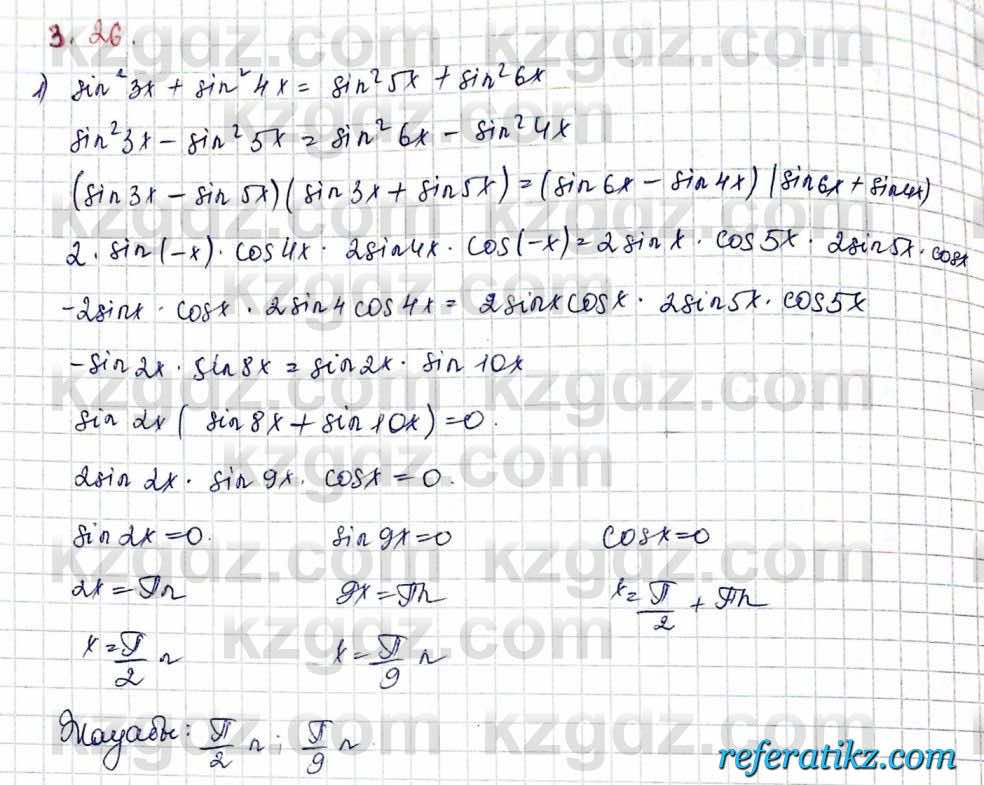 3. 26.
1) sin²3x + sin²4x = sin²5x + sin²6x
sin²3x − sin²5x = sin²6x − sin²4x
(sin3x − sin5x)(sin3x + sin5x) = (sin6x − sin4x)(sin6x + sin4x)
2 · sin(−x) · cos4x · 2sin4x · cos(−x) = 2sinx · cos5x · 2sin5x · cosx
−2sinx · cosx · 2sin4cos4x = 2sinxcosx · 2sin5x · cos5x
−sin2x · sin8x = sin2x · sin10x
sin2x(sin8x + sin10x) = 0.
2sin2x · sin9x · cosx = 0.
sin2x = 0. sin9x = 0 cosx = 0
2x = πn 9x = πn x = π/2 + πn
x = π/2 n x = π/9 n
Жауабы: π/2 n ; π/9 n
kzgdz.com
referatikz.com